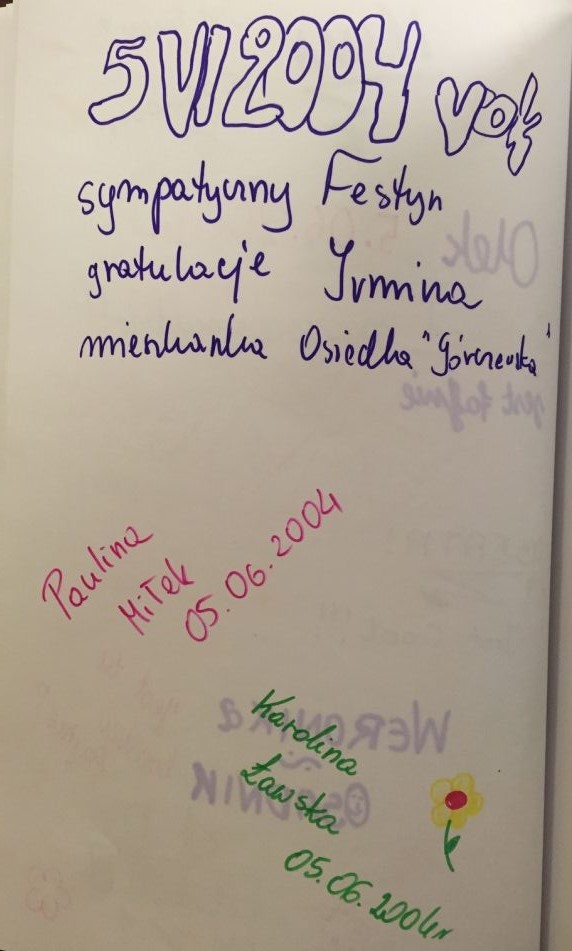 5 VI 2004 rok
sympatyczny Festyn
gratulacje Irmina
mieszkanka Osiedla "Górczewska"
Paulina
Miłek
05.06.2004
Karolina
Ławska
05.06.2004r